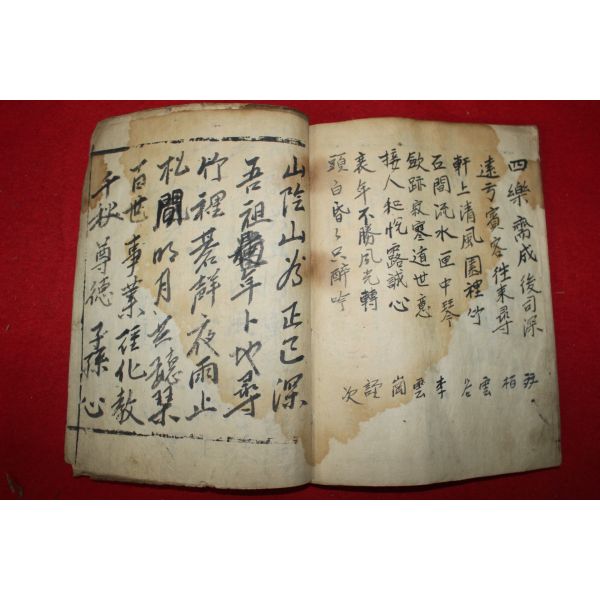 四樂齋成後司深
遠方賓客往來尋
軒上清風園裡竹
石間流水匣中琴
歛跡寂寞逍世意
接人和悅露誠心
衰年不勝風光轉
頭白昏〻只醉吟
栢
雲谷
李雲崗
謹次
山陰山岑正已深
吾祖年卜地尋
竹裡碁鮮夜雨止
松間明月共聽琴
百世事業經化教
千秋尊德子孫心